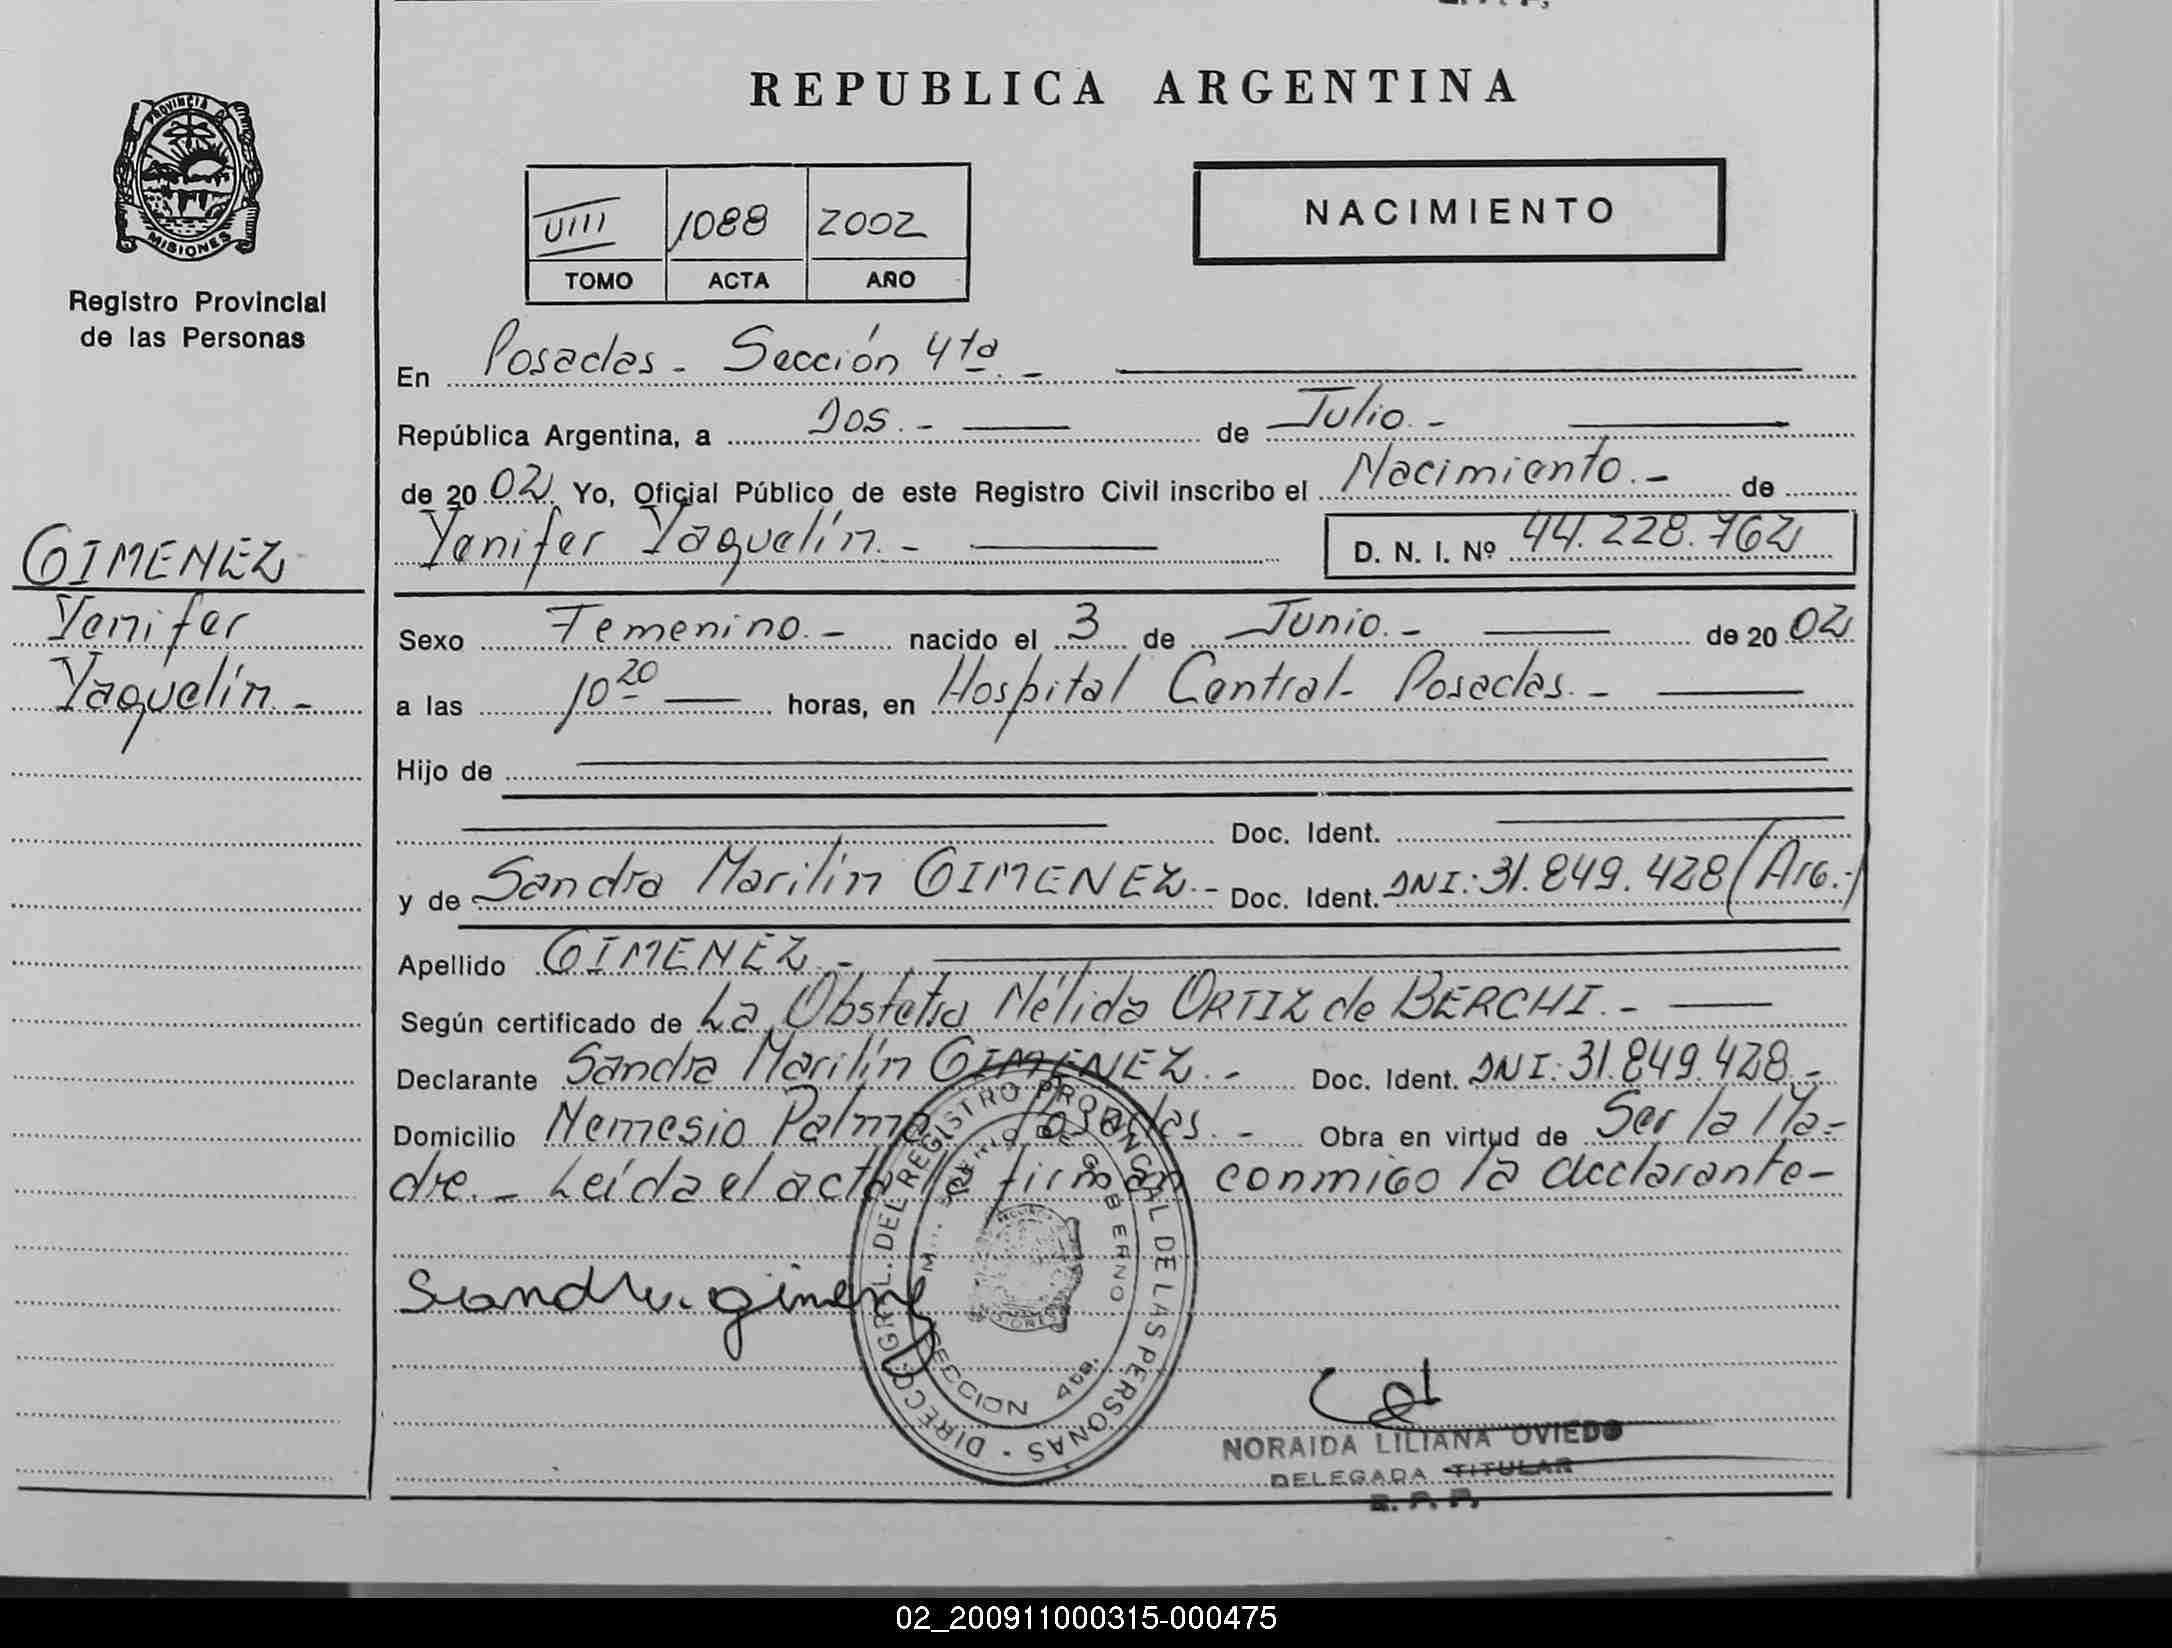 REPUBLICA ARGENTINA
PROVINCIA DE
MISIONES
Registro Provincial
de las Personas
VIII 1088 2002
TOMO ACTA AÑO
NACIMIENTO
En Posadas - Sección 4ta. -
República Argentina, a Dos. - de Julio. -
de 2002 Yo, Oficial Público de este Registro Civil inscribo el Nacimiento. - de
Yenifer Yaquelín. - D. N. I. Nº 44.228.762
GIMENEZ
Yenifer
Yaquelín. -
Sexo Femenino. - nacido el 3 de Junio. - de 2002
a las 10 20 horas, en Hospital Central - Posadas. -
Hijo de
Doc. Ident.
y de Sandra Marilín GIMENEZ. - Doc. Ident. DNI: 31.849.428 (Arg.-)
Apellido GIMENEZ. -
Según certificado de La Obstetra Nélida ORTIZ de BERCHI. -
Declarante Sandra Marilín GIMENEZ. - Doc. Ident. DNI: 31.849.428. -
Domicilio Nemesio Palma Posadas. - Obra en virtud de Ser la Ma-
dre. - Leída el acta la firman conmigo la declarante -
DIRECC. GRL. DEL REGISTRO PROVINCIAL DE LAS PERSONAS
DE GOBIERNO
SECCION 4ta.
MISIONES
Sandra gimenez
NORAIDA LILIANA OVIEDO
DELEGADA TITULAR
R. P. P.
02_200911000315-000475